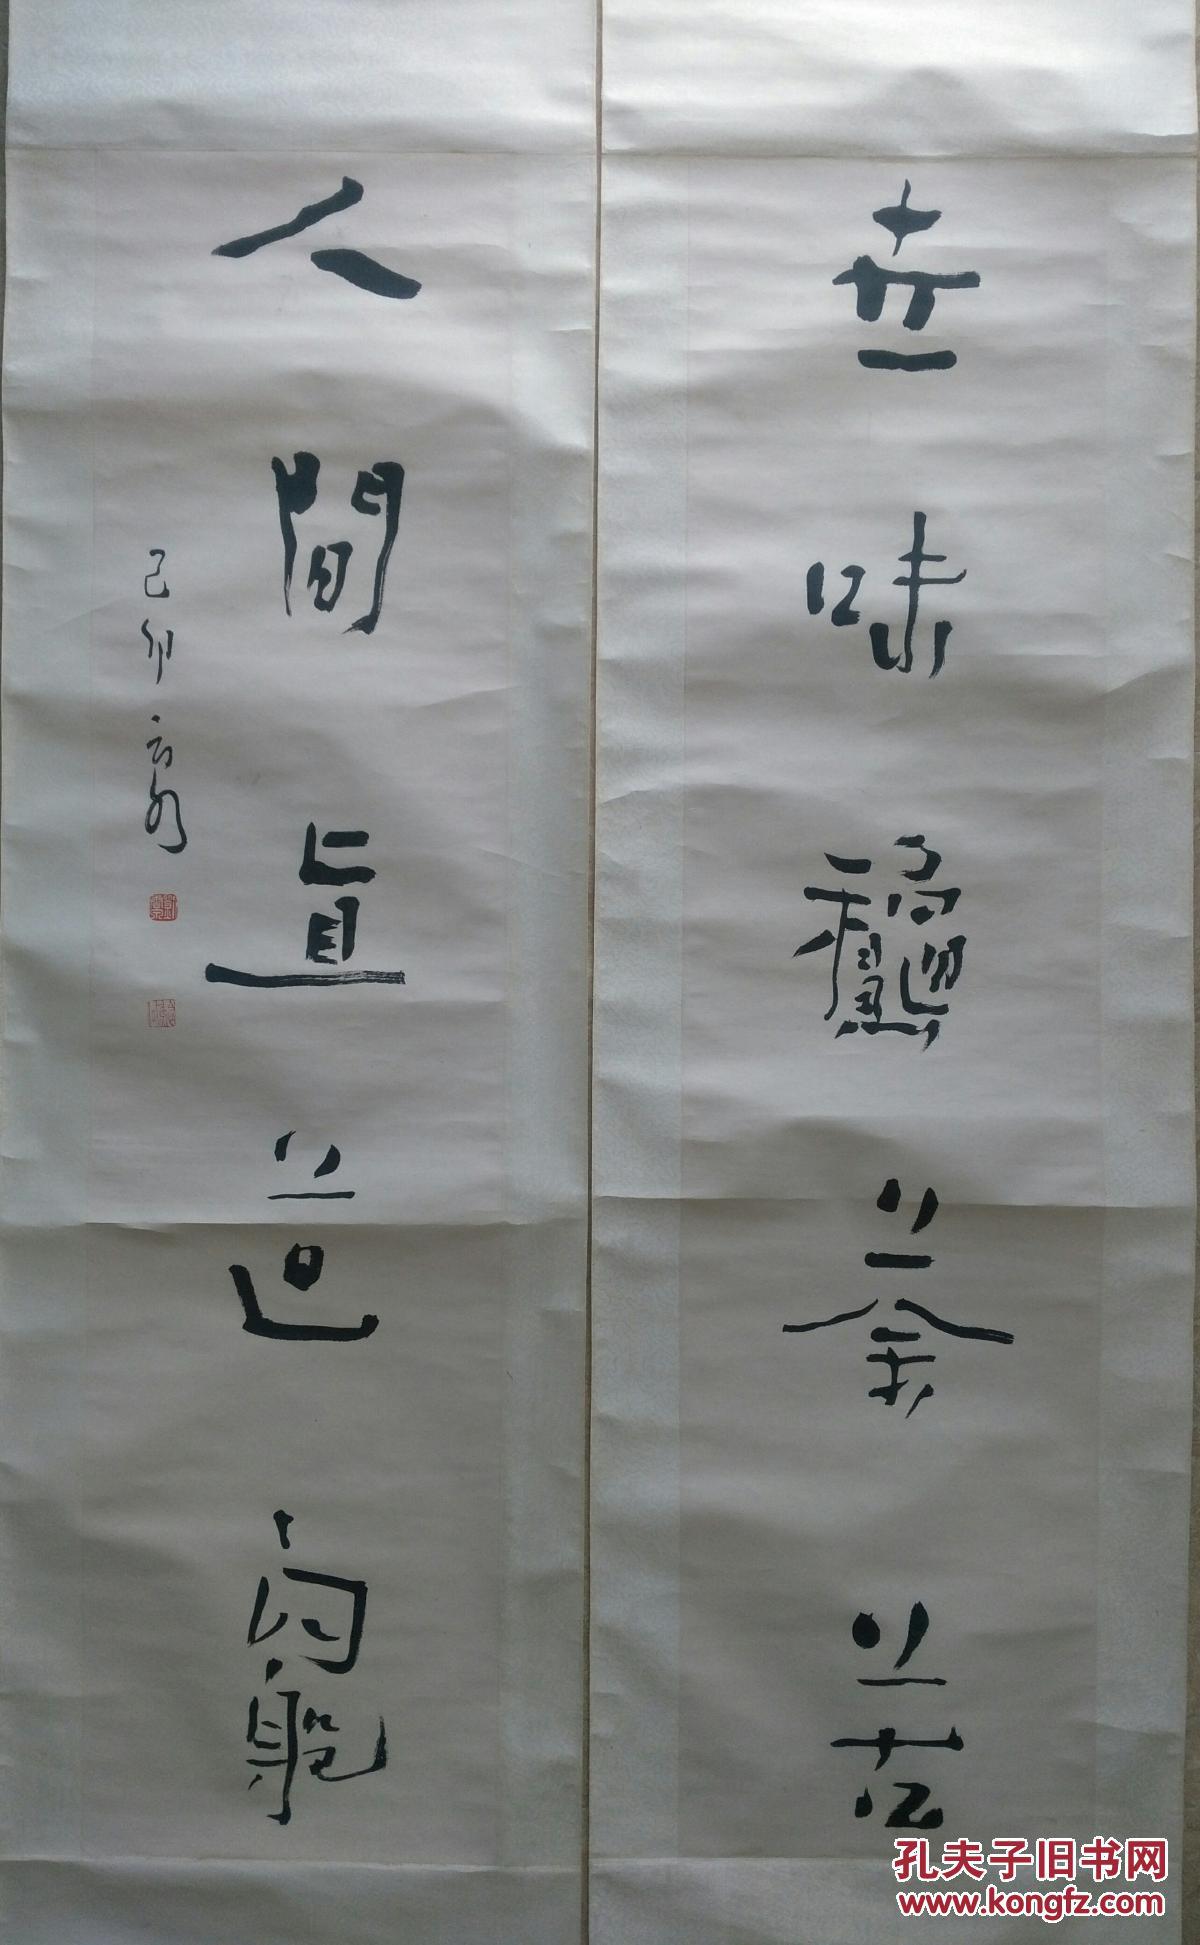 世味龝荼苦
人間直道窮
己卯
孔夫子旧书网
www.kongfz.com